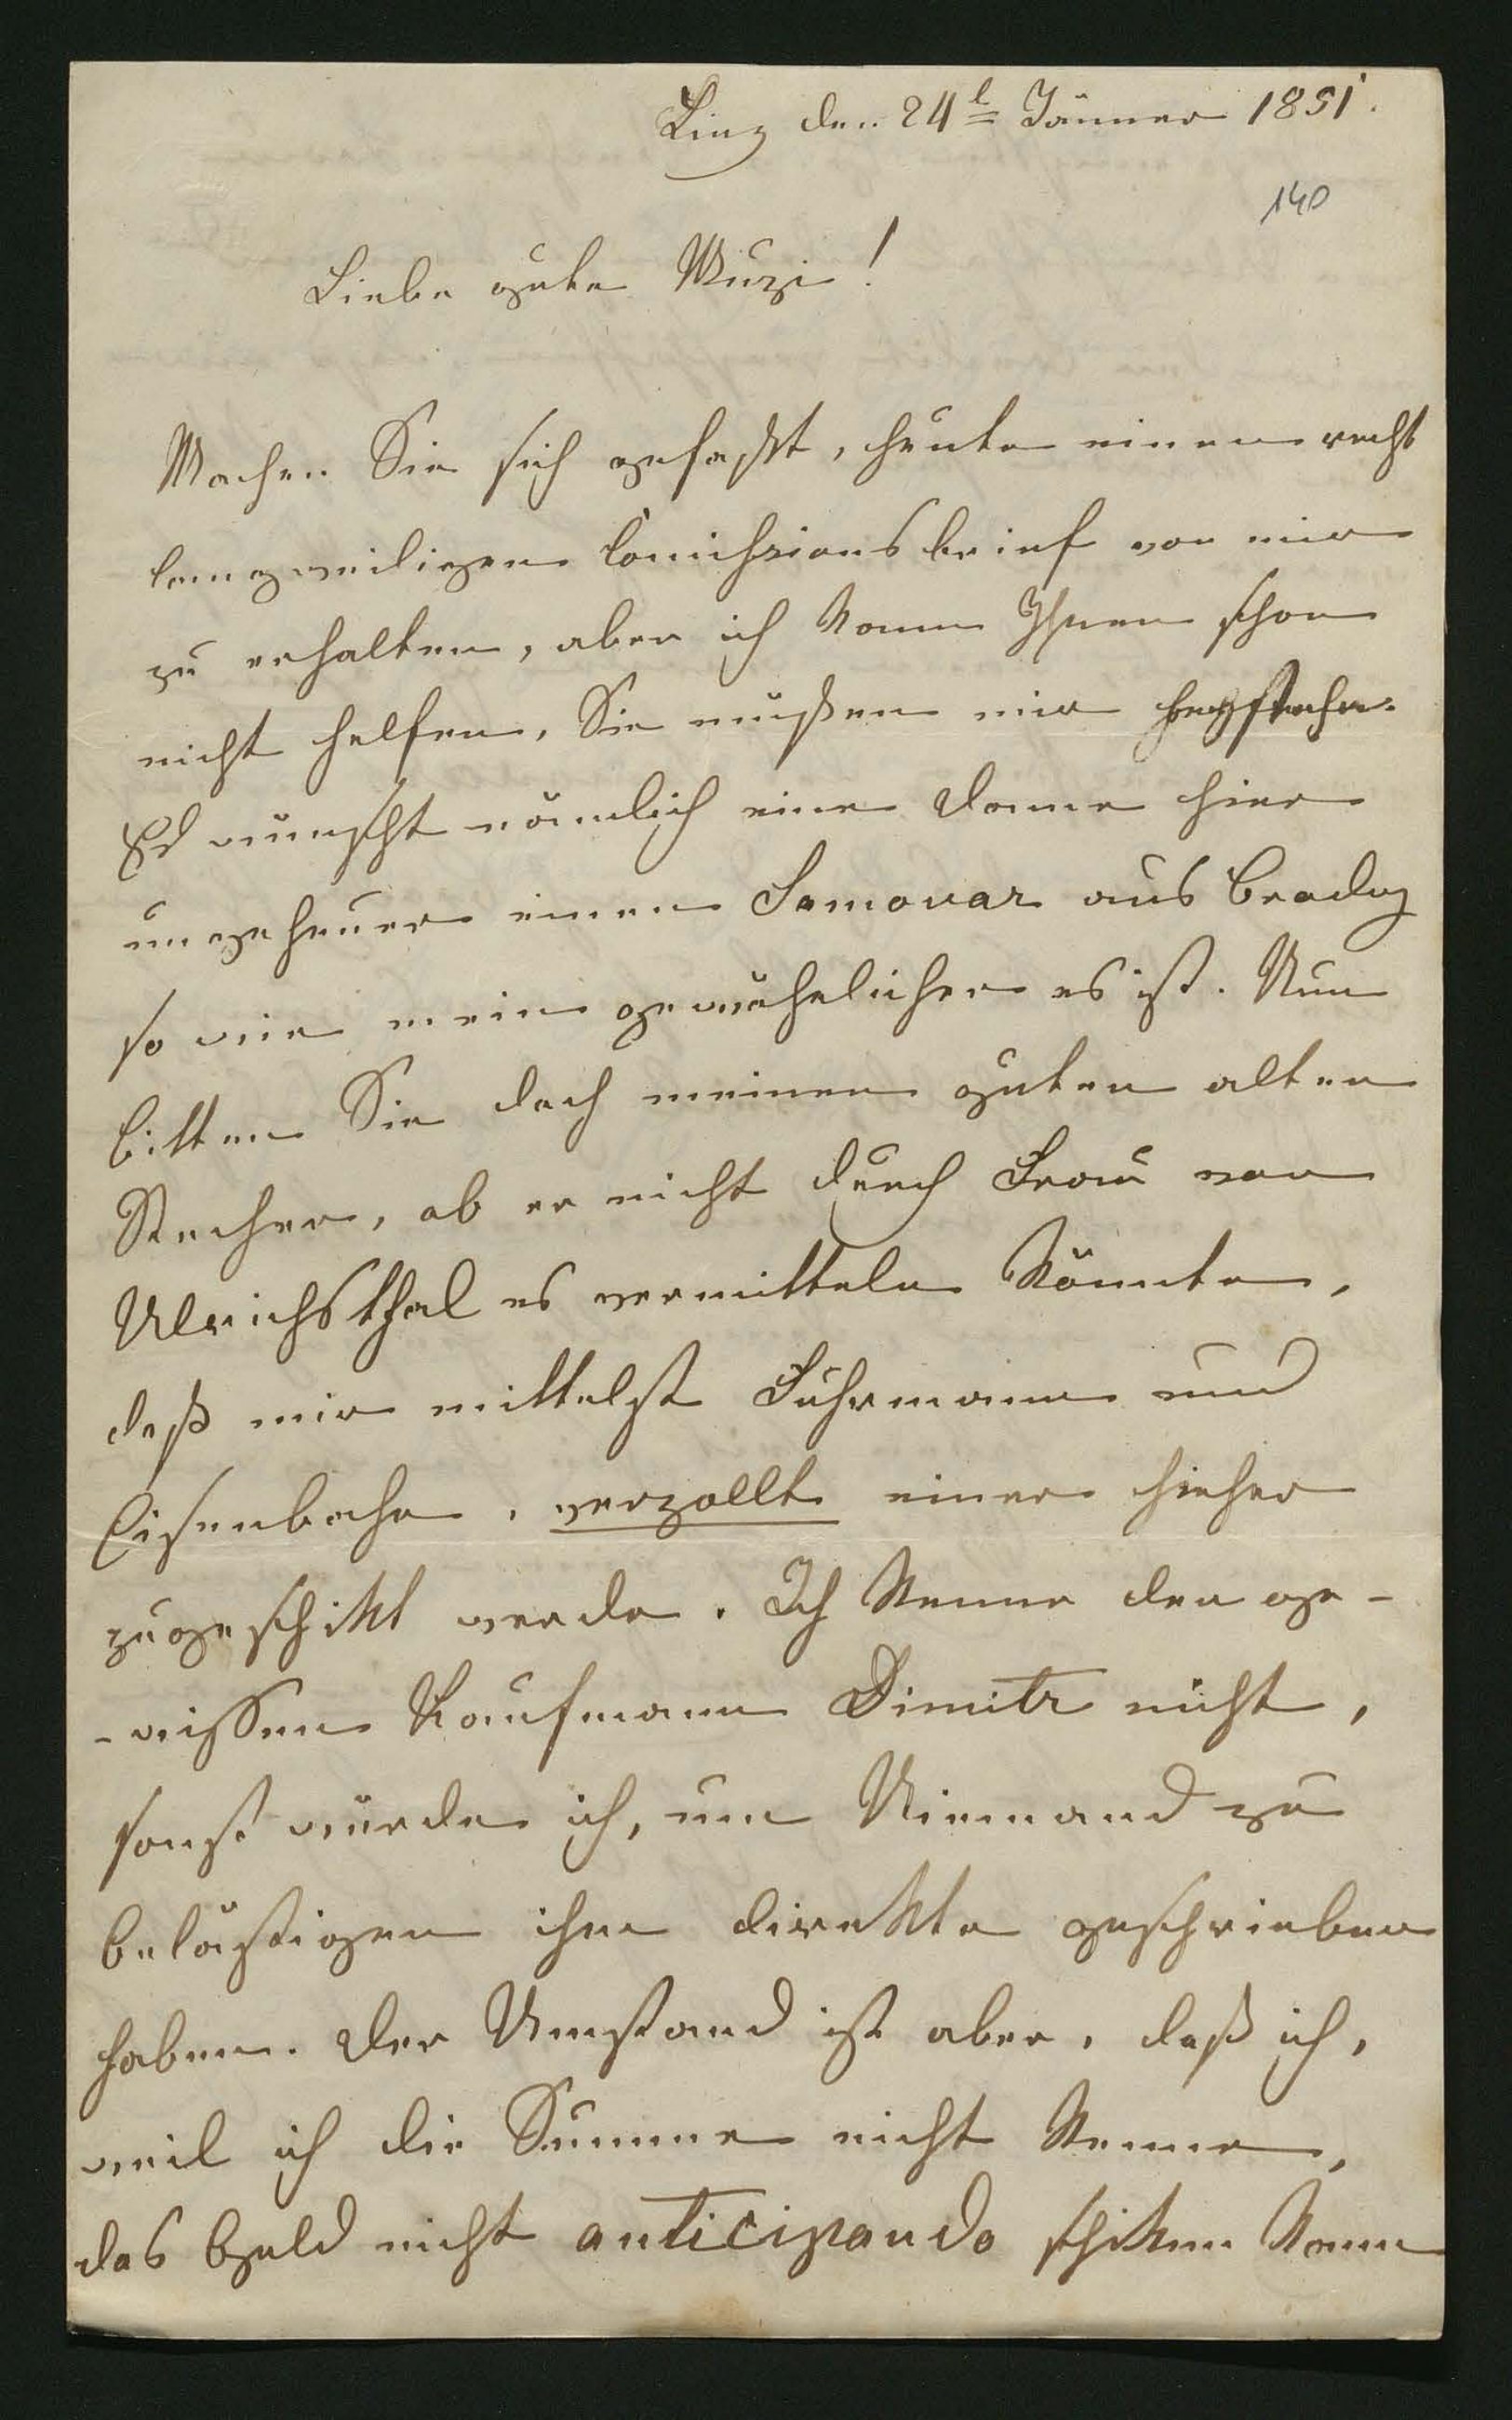 Linz den 24t Jänner 1851.
140
Liebe gute Muzi!
Machen Sie sich gefaßt, heute einen recht
langweiligen Comißionsbrief von mir
zu erhalten, aber ich kann Ihnen schon
nicht helfen, Sie müßen mir beystehn.
Es wünscht nämlich eine Dame hier
ungeheuer einen Samovar aus Brody
so wie mein gewöhnlicher es ist. Nun
bitten Sie doch meinen guten alten
Stecher, ob er nicht durch Frau von
Ulrichsthal es vermitteln könnte,
daß mir mittelst Fuhrmann und
Eisenbahn, verzollt einer hieher
zugeschikt werde. Ich kenne den ge-
-wissen Kaufmann Dimitr nicht,
sonst würde ich, um Niemand zu
belästigen ihm direkte geschrieben
haben. Der Umstand ist aber, daß ich,
weil ich die Summe nicht kenne,
das Geld nicht anticipando schiken kann